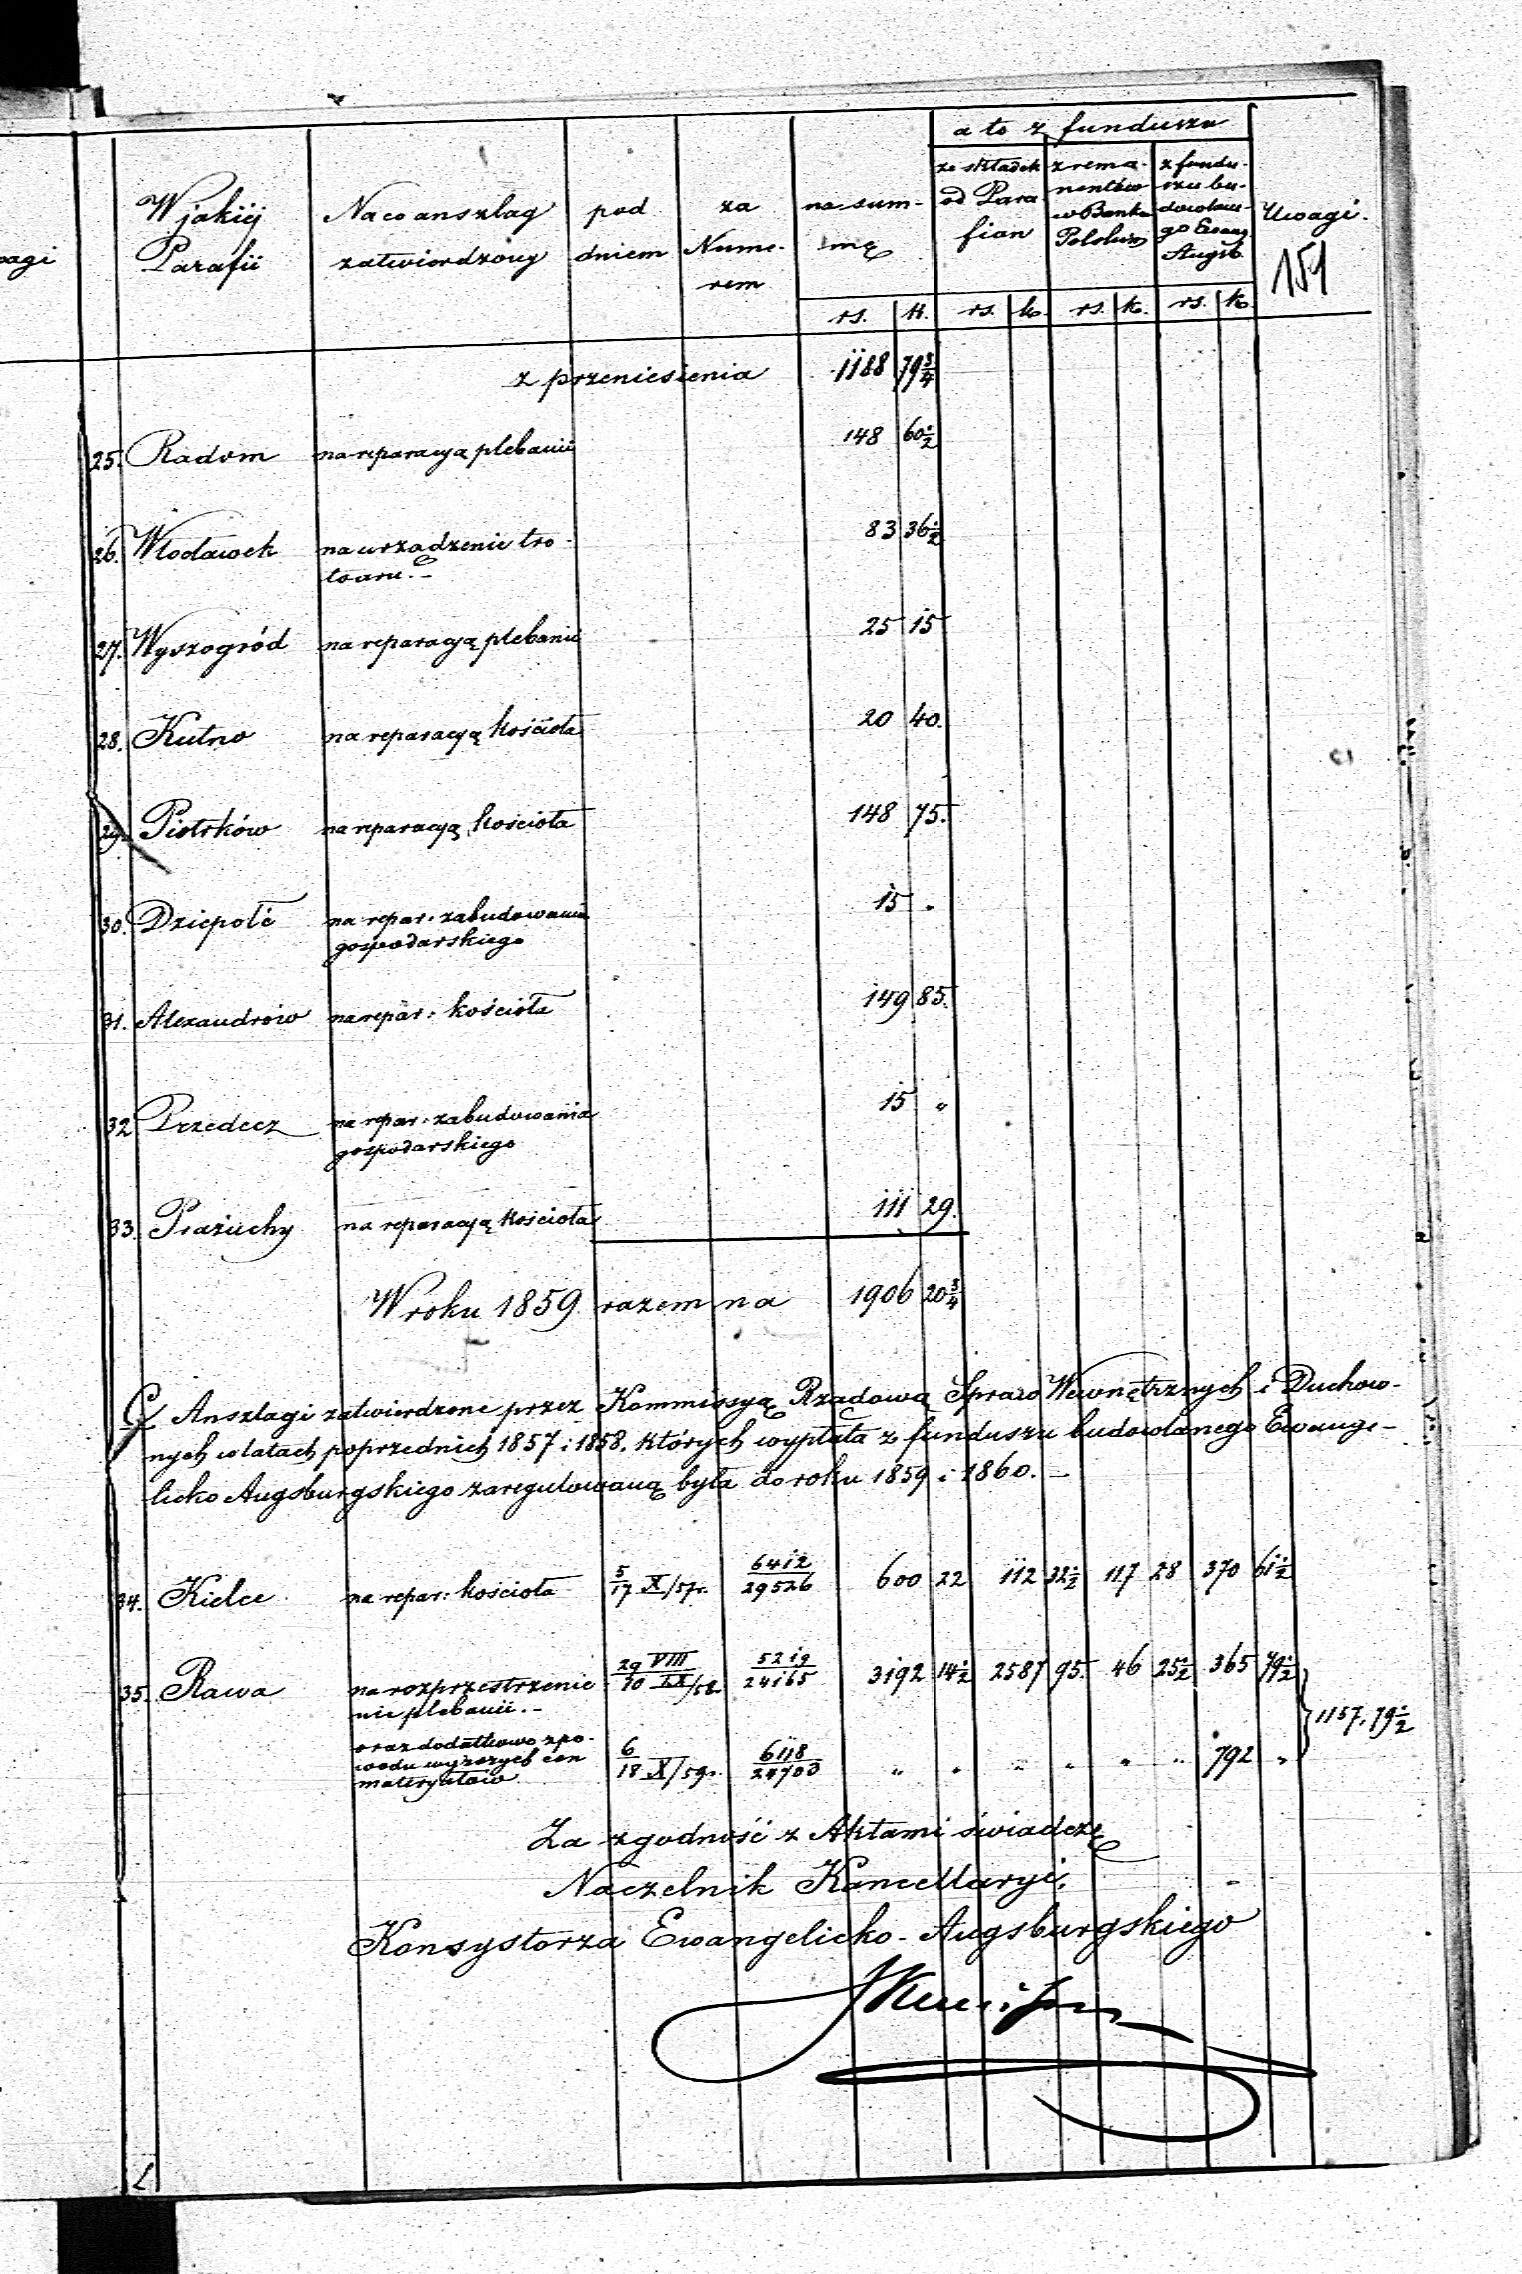 a to z funduszu
W jakiéj Parafii
Na co anszlag zatwierdzony
pod dniem
za Nume- rem
na sum- mę
ze składek od Para fian
z rema- nentów w Banku Polskim
z fundu- szu bu- dowlane- go Ewang. Augsb.
Uwagi.
151
rs. k. rs. k. rs. k. rs. k.
z przeniesienia 1188 79 3/4
25. Radom na reparacyą plebanii 148 60 1/2
26. Włocławek na urządzenie tro-
toaru.- 83 36 1/2
27. Wyszogród na reparacyą plebanii 25 15
28. Kutno na reparacyą kościoła 20 40.
29. Piotrków na reparacyą kościoła 148 75.
30. Dziepołć na repar. zabudowania
gospodarskiego 15 "
31. Alexandrów na repar: kościoła 149 85.
32 Przedecz na repar. zabudowania
gospodarskiego 15 "
33. Prażuchy na reparacyą kościoła 111 29.
W roku 1859 razem na 1906 20 3/4
C/ Anszlagi zatwierdzone przez Kommissyą Rządową Spraw Wewnętrznych i Duchow-
nych w latach poprzednich 1857 i 1858. których wypłata z funduszu budowlanego Ewange-
licko Augsburgskiego zaregulowaną była do roku 1859 i 1860.-
34. Kielce na repar: kościoła 5/17 X/57r. 6412/29526 600 22 112 32 1/2 117 28 370 61 1/2
35. Rawa na rozprzestrzenie
nie plebanii.- 29 VIII/10 IX/58 5219/24165 3192 14 1/2 2587 95. 46 25 1/2 365 79 1/2
1157. 79 1/2
oraz dodatkowo z po-
wodu wyższych cen
materyałów 6/18 X/59r. 6118/24703 " " " " " " 792 "
Za zgodność z Aktami świadczę
Naczelnik Kancellaryi,
Konsystorza Ewangelicko-Augsburgskiego